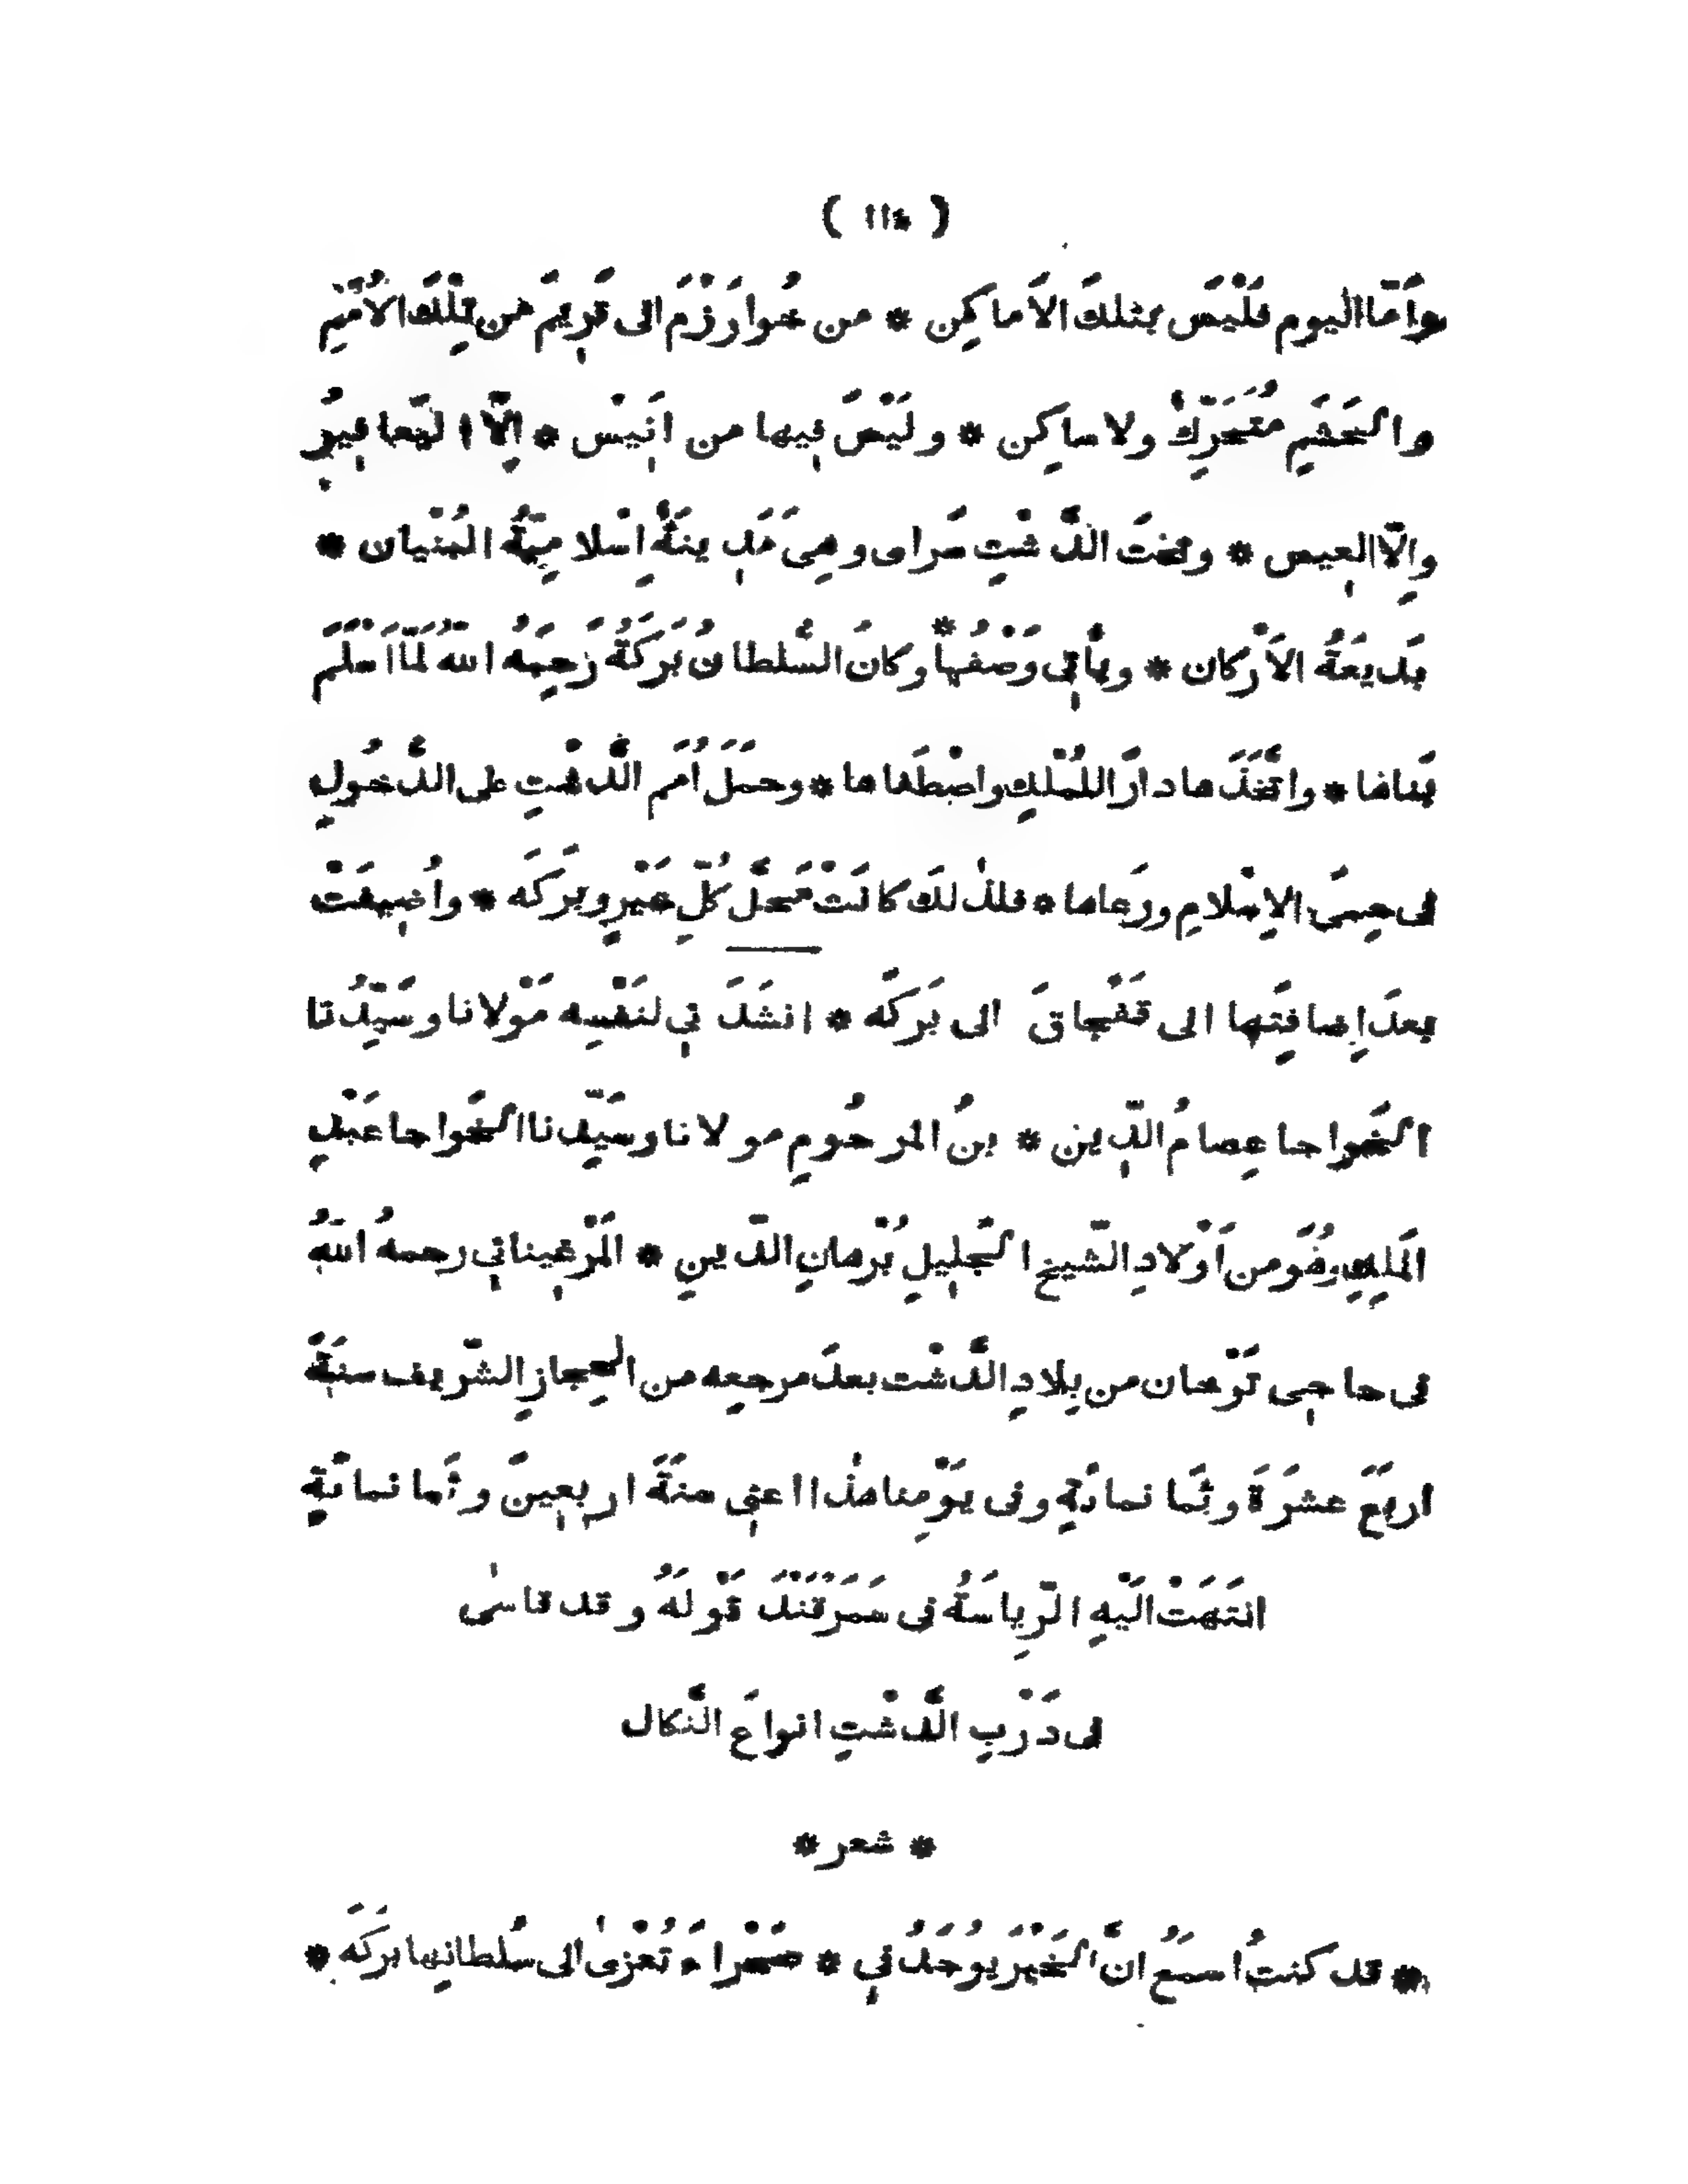 ( ١١٤ )
وَأَمّا اليوم فَلَيْسَ بتلكَ الأَماكِن * من خُوارَزْمَ الى قَرِيمَ مِن تِلْكَ الأُمَمِ
والحَشَمِ مُتَحَرِّكٌ ولا ساكِن * ولَيْسَ فيها من انَيِسْ * اِلّا اليَعافِيرُ
وِالّا العِيس * وتختَ الدَّشْتِ سَراى وهِىَ مَدِينَةٌ اِسْلامِيّةُ البُنْيان *
بَدِيعَةُ الأَرْكان * ويأتِى وَصْفُها * وكانَ السُّلطانُ بَرَكَةُ رَحِمَهُ اللهُ لَمّا اَسْلَمَ
بَناها * واتَّخَذَها دارًا للمُلْكِ واصْطَفاها * وحمَلَ اُمَمَ الدَّشْتِ على الدُّخُولِ
فى حِمَى الاِسْلامِ ورَعاها * فلذٰلكَ كانَتْ مَحَلَّ كُلِّ خَيْرٍ وبَرَكَه * واُضِيفَتْ
بعدَ اِضافَتِها الى قَفْجاقَ الى بَرَكَه * انشَدَنِي لنَفْسِه مَوْلانا وسَيِّدُنا
الخَواجا عِصامُ الدِّين * بنُ المرحُومِ مولانا وسَيِّدنا الخَواجا عَبْدِ
المَلِكِ وهُوَ من اَوْلادِ الشّيخِ الجَلِيلِ بُرْهانِ الدّينِ * المَرْغِينانِي رحمهُ اللهُ
فى حاجِى تَرْخان من بِلادِ الدَّشْت بعدَ مرجعِه من الحِجازِ الشّريف سنَةَ
اربَعَ عشرَةَ وثَمانمائةٍ وفى يَوْمِنا هذٰا اعنِى سنَةَ اربعِينَ وثَمانمائةٍ
انتَهَتْ اليْهِ الرِّياسَةُ فى سَمَرْقَنْدَ قَوْلهُ وقد قاسٰى
فى دَرْبِ الدَّشْتِ انواعَ النَّكال
* شعر *
* قد كنتُ اسمَعُ انَّ الخَيْرَ يُوجَدُ فِي * صَحْراءَ تُعْزىٰ الى سُلطانِها بَرَكَه *